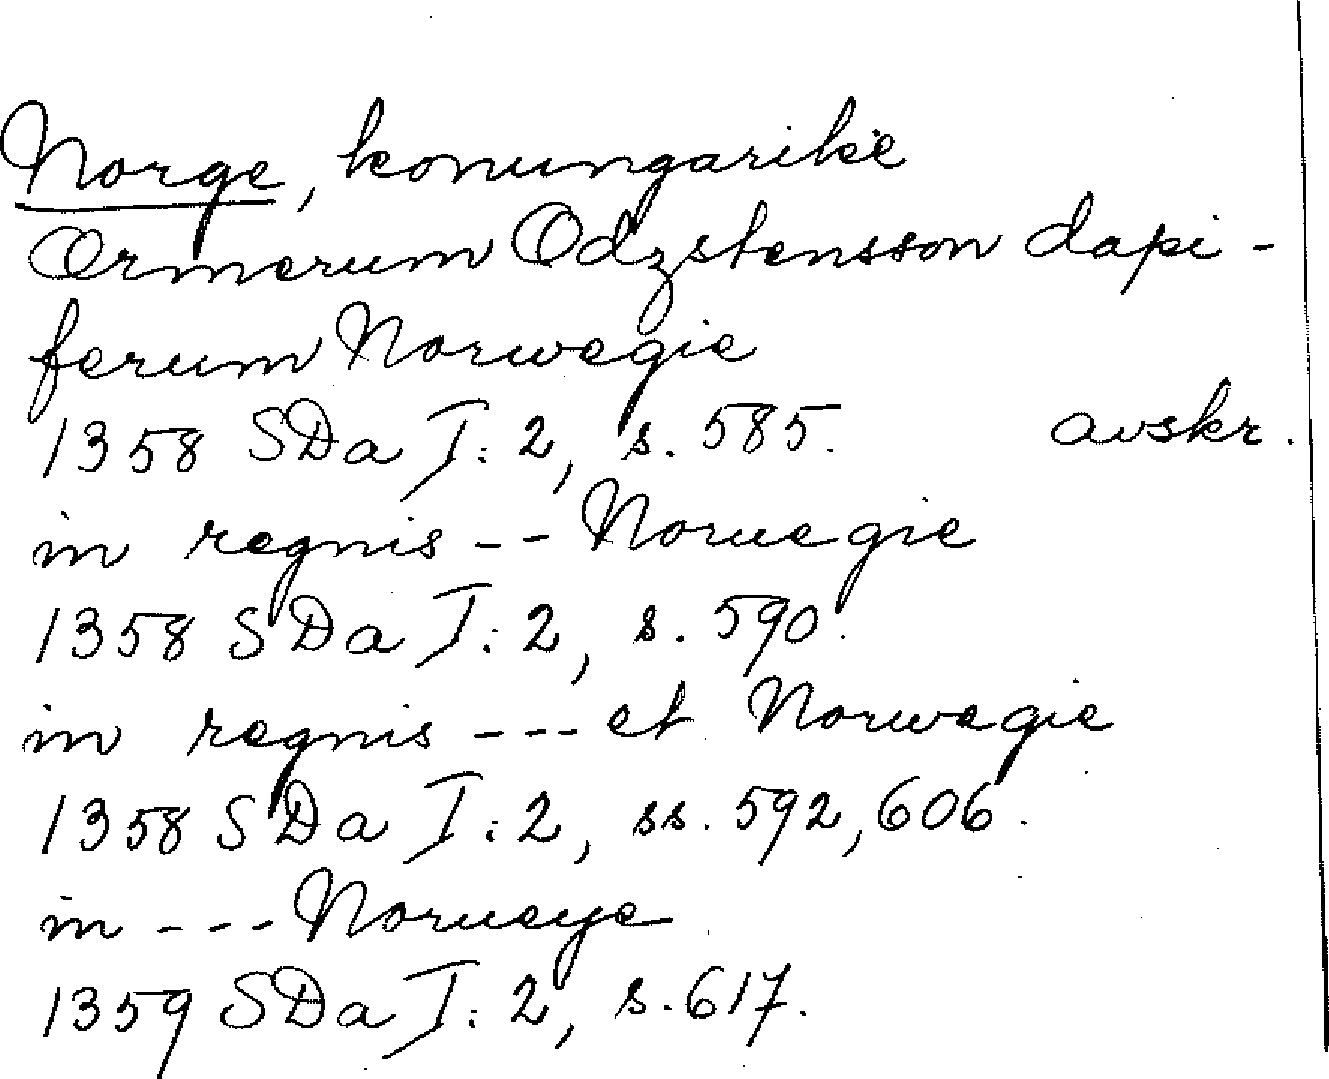 Norge, konungarike
Ormerum Odzstensson dapi-
ferum Norwegie
1358 SDa I:2, s. 585. avskr.
in regnis -- Noruegie
1358 SDa I:2, s. 590.
in regnis --- et Norwegie
1358 SDa I:2, ss. 592, 606.
in --- Norueye
1359 SDa I:2, s. 617.